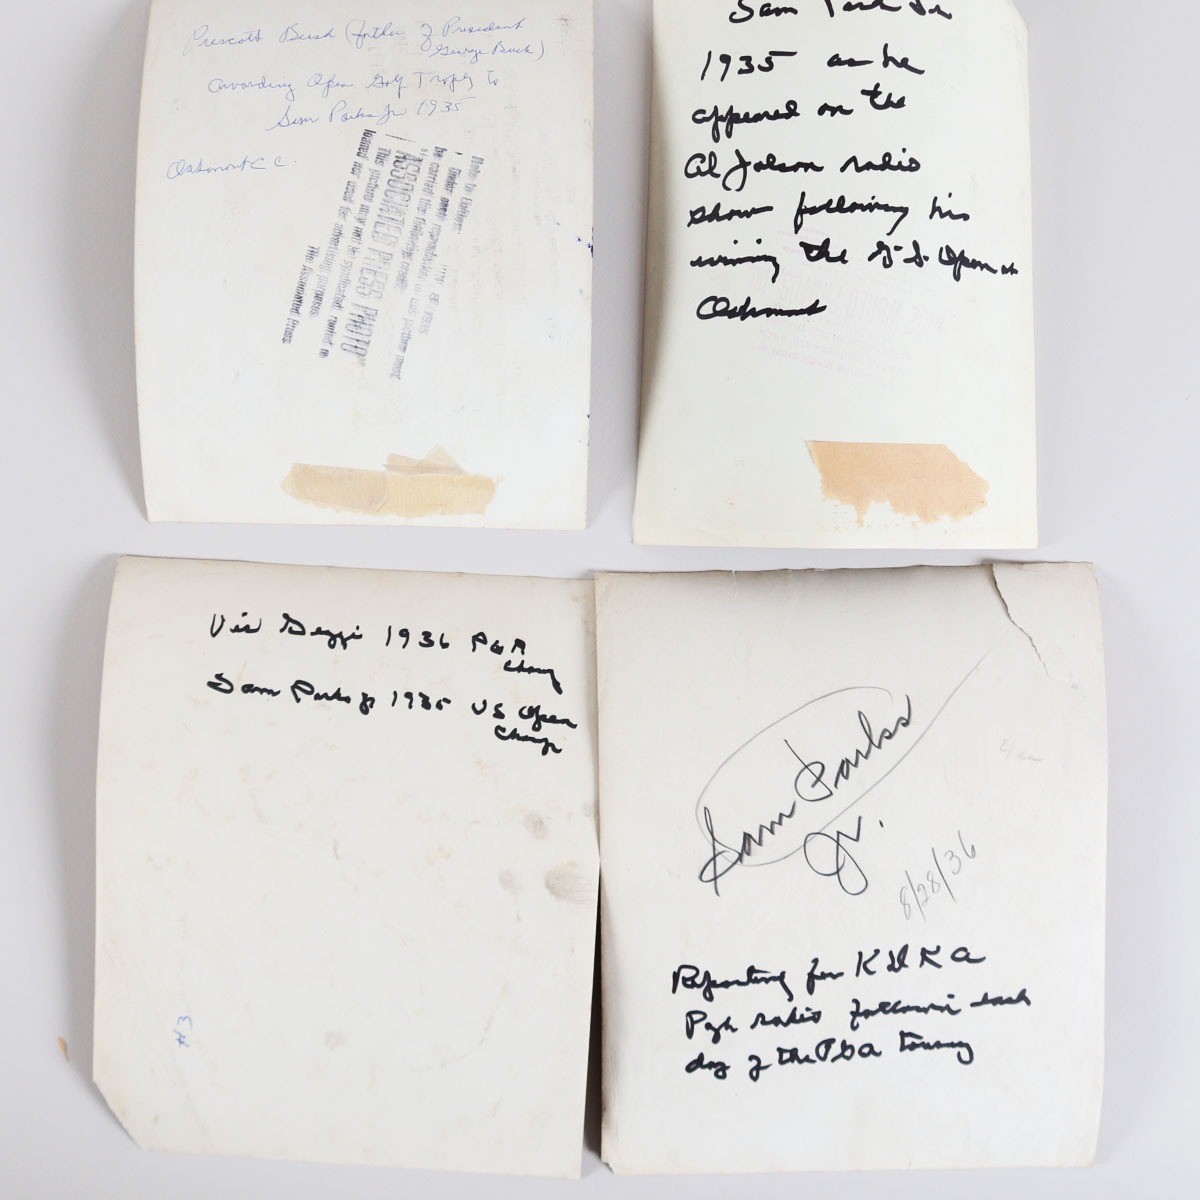 Prescott Bush (father of President
George Bush)
awarding Open Golf Trophy to
Sam Parks Jr 1935
Oakmont C C.
Note to Editors:
Under each reproduction of this picture must
be carried the following credit:
ASSOCIATED PRESS PHOTO
This picture may not be syndicated, rented or
loaned nor used for advertising purposes
The Associated Press
Sam Parks Jr
1935 as he
appeared on the
Al Jolson radio
show following his
winning the U S Open at
Oakmont
WIDE WORLD
Vic Gezzi 1936 PGA
Champ
Sam Parks Jr 1935 US Open
Champ
#3
Sam Parks
Jr.
8/28/36
Reporting for KDKA
Pgh radio following each
day of the PGA Tourney